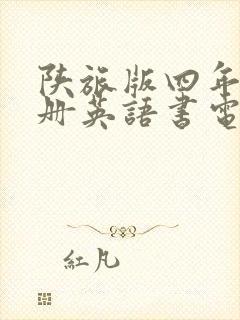 陕旅版四年
册英語書電
紅凡